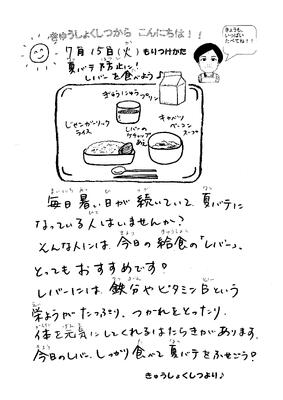 きゅうしょくしつから こんにちは!!
きょうも、
いっぱい
たべてね!!
7月15日(火) もりつけかた
夏バテ防止に!
レバーを食べよう♪
ぎゅうにゅうプリン
じゃこガーリック
ライス
レバーの
ケチャップ
あえ
キャベツ
ベーコン
スープ
毎日暑い日が続いていて、夏バテに
なっている人はいませんか?
そんな人には、今日の給食の「レバー」、
とってもおすすめです!
レバーには、鉄分やビタミンBという
栄ようがたっぷり、つかれをとったり、
体を元気にしてくれるはたらきがあります。
今日のレバー、しっかり食べて夏バテをふせごう!
きゅうしょくしつより♪